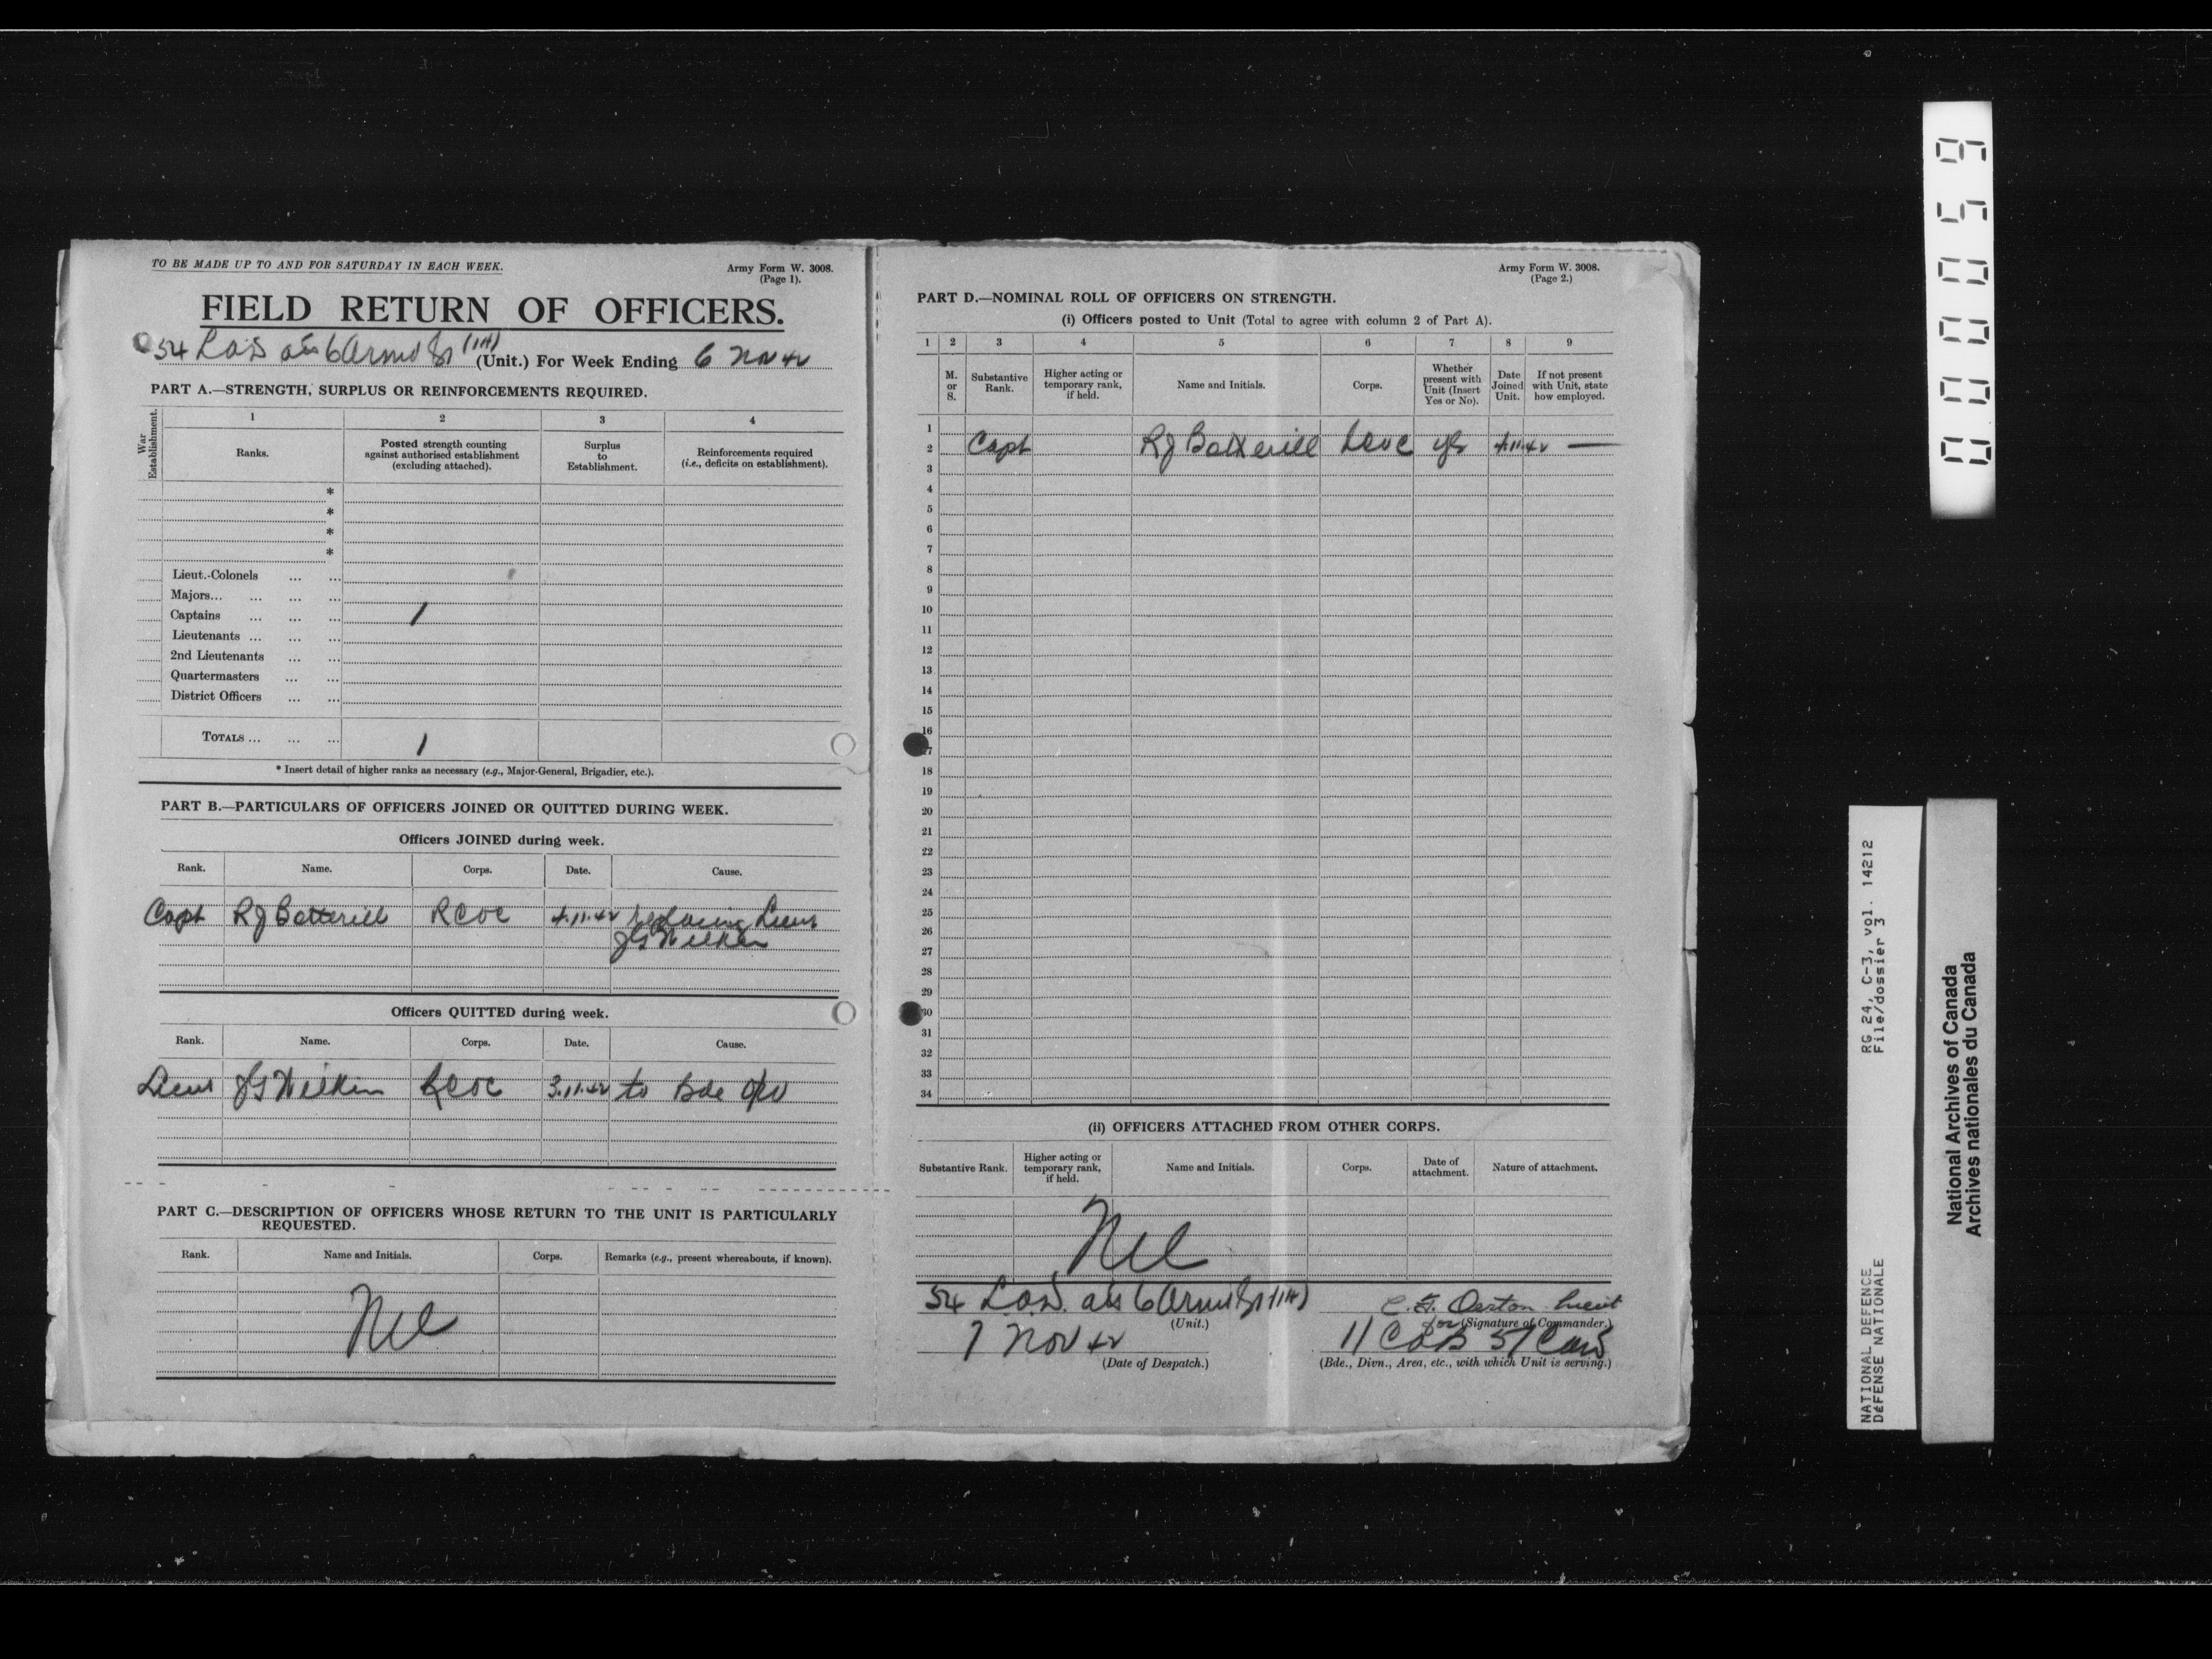 TO BE MADE UP TO AND FOR SATURDAY IN EACH WEEK.
Army Form W. 3008.
(Page 1).
FIELD RETURN OF OFFICERS.
54 L.A.D. (Unit.) For Week Ending 6 Nov 42
PART A.—STRENGTH, SURPLUS OR REINFORCEMENTS REQUIRED.
War Establishment.
1 2 3 4
Ranks.
Posted strength counting against authorised establishment (excluding attached).
Surplus to Establishment.
Reinforcements required (i.e., deficits on establishment).
*
*
*
*
Lieut.-Colonels ... ...
Majors... ... ... ...
Captains ... ... ... 1
Lieutenants ... ... ...
2nd Lieutenants ... ...
Quartermasters ... ...
District Officers ... ...
TOTALS ... ... ... 1
* Insert detail of higher ranks as necessary (e.g., Major-General, Brigadier, etc.).
PART B.—PARTICULARS OF OFFICERS JOINED OR QUITTED DURING WEEK.
Officers JOINED during week.
Rank. Name. Corps. Date. Cause.
Capt RJ Botterill RCOC 4.11.42 replacing Lieut
JG Wilkin
Officers QUITTED during week.
Rank. Name. Corps. Date. Cause.
Lieut JG Wilkin RCOC 3.11.42 to Bde
PART C.—DESCRIPTION OF OFFICERS WHOSE RETURN TO THE UNIT IS PARTICULARLY
REQUESTED.
Rank. Name and Initials. Corps. Remarks (e.g., present whereabouts, if known).
Nil
Army Form W. 3008.
(Page 2.)
PART D.—NOMINAL ROLL OF OFFICERS ON STRENGTH.
(i) Officers posted to Unit (Total to agree with column 2 of Part A).
1 2 3 4 5 6 7 8 9
M. or S.
Substantive Rank.
Higher acting or temporary rank, if held.
Name and Initials.
Corps.
Whether present with Unit (Insert Yes or No).
Date Joined Unit.
If not present with Unit, state how employed.
1
2 Capt RJ Botterill RCOC yes 4.11.42 —
3
4
5
6
7
8
9
10
11
12
13
14
15
16
17
18
19
20
21
22
23
24
25
26
27
28
29
30
31
32
33
34
(ii) OFFICERS ATTACHED FROM OTHER CORPS.
Substantive Rank.
Higher acting or temporary rank, if held.
Name and Initials.
Corps.
Date of attachment.
Nature of attachment.
Nil
54 L.A.D.
(Unit.)
Lieut
for (Signature of Commander.)
7 Nov 42
(Date of Despatch.)
(Bde., Divn., Area, etc., with which Unit is serving.)
000059
RG 24, C-3, vol. 14212
File/dossier 3
NATIONAL DEFENCE
DÉFENSE NATIONALE
National Archives of Canada
Archives nationales du Canada